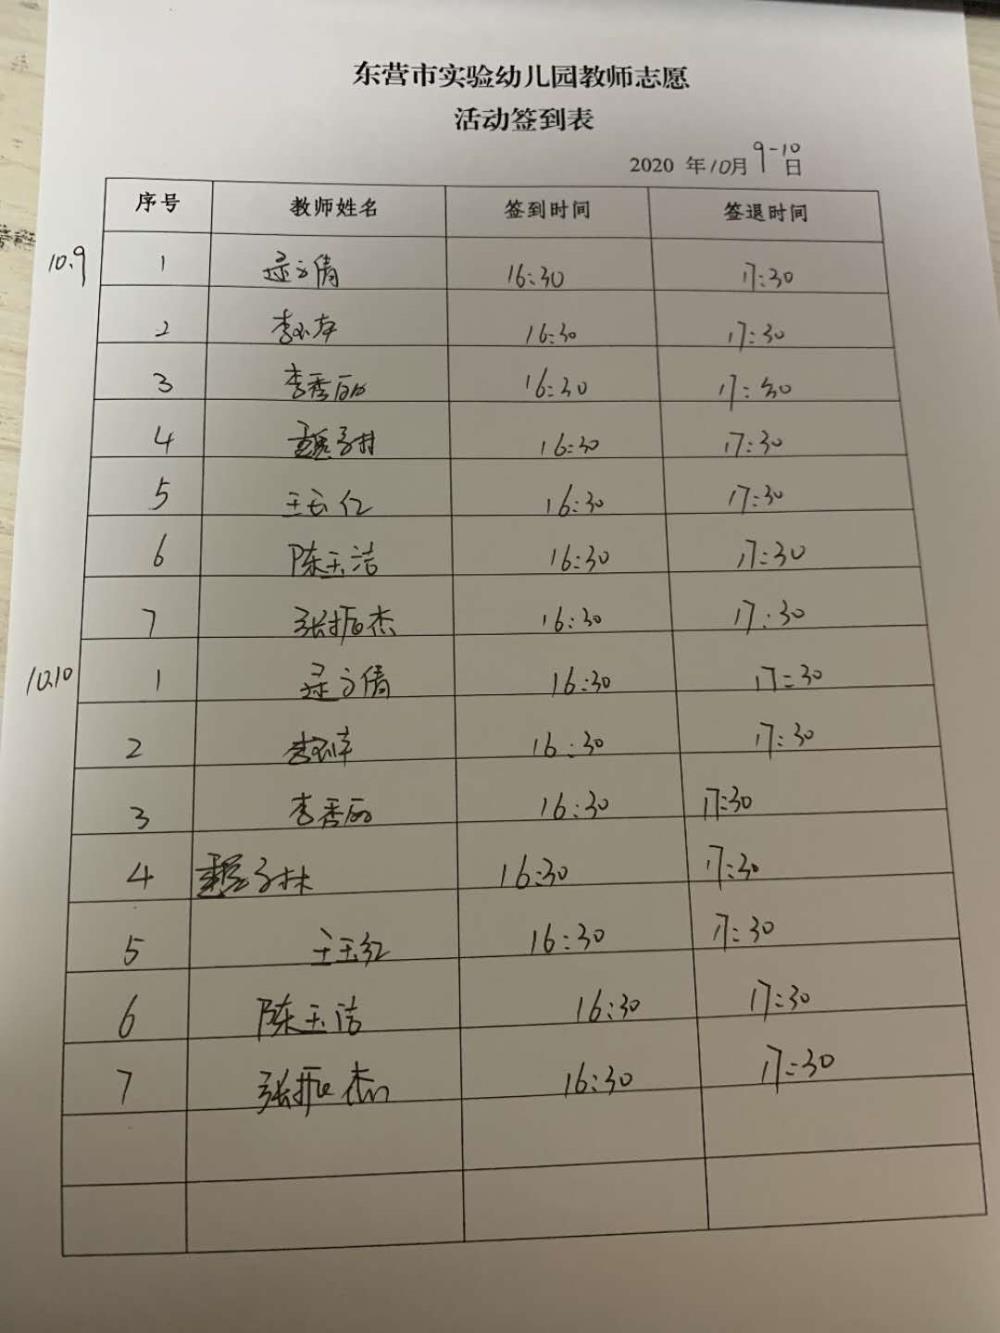 东营市实验幼儿园教师志愿
活动签到表
2020 年10月9-10日
序号 教师姓名 签到时间 签退时间
10.9 1 16:30 17:30
2 16:30 17:30
3 李秀丽 16:30 17:30
4 16:30 17:30
5 王玉红 16:30 17:30
6 陈玉洁 16:30 17:30
7 张振杰 16:30 17:30
10.10 1 16:30 17:30
2 16:30 17:30
3 李秀丽 16:30 17:30
4 16:30 17:30
5 王玉红 16:30 17:30
6 陈玉洁 16:30 17:30
7 张振杰 16:30 17:30